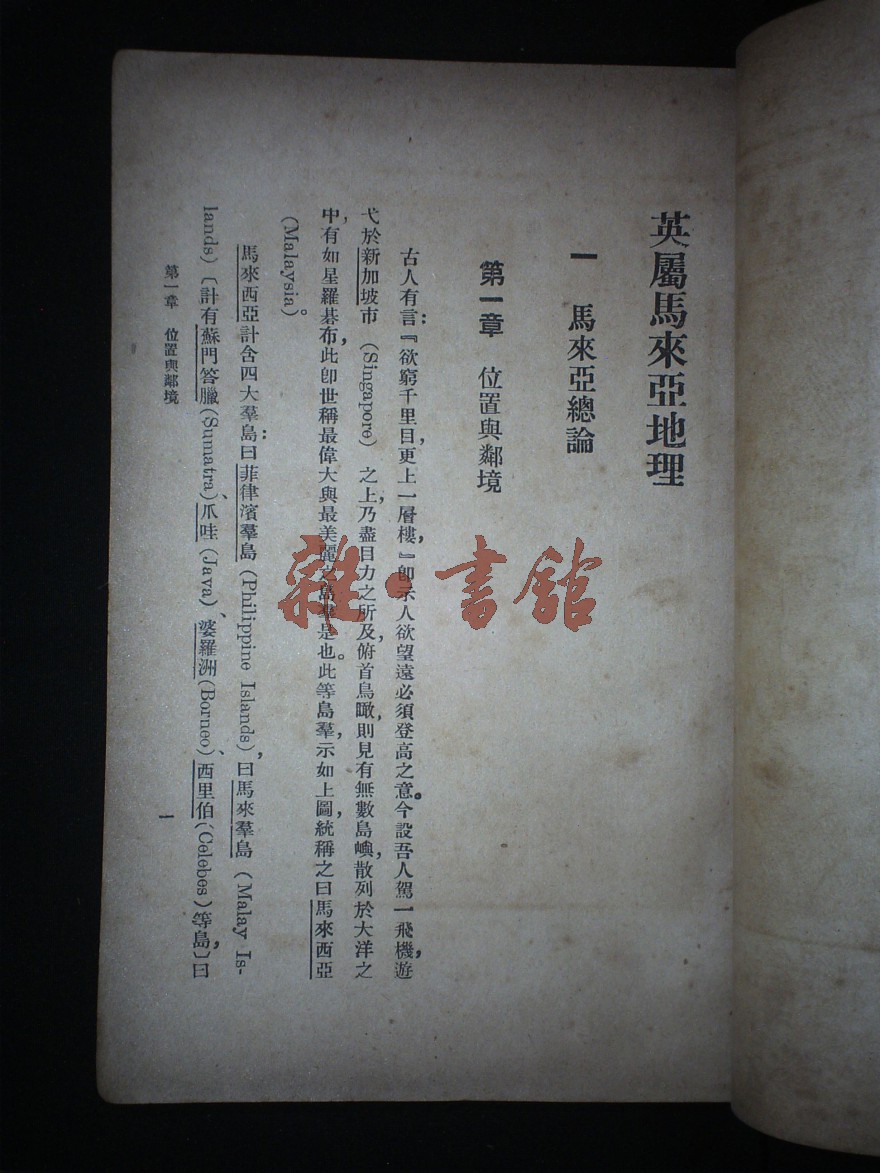 英屬馬來亞地理
一　馬來亞總論
第一章　位置與鄰境
古人有言：『欲窮千里目，更上一層樓，』卽示人欲望遠必須登高之意。今設吾人駕一飛機，遊
弋於新加坡市（Singapore）之上，乃盡目力之所及，俯首鳥瞰，則見有無數島嶼，散列於大洋之
中，有如星羅碁布，此卽世稱最偉大與最美麗之島羣是也。此等島羣，示如上圖，統稱之曰馬來西亞
（Malaysia）。
馬來西亞計含四大羣島：曰菲律濱羣島（Philippine Islands），曰馬來羣島（Malay Is-
lands）〔計有蘇門答臘（Sumatra）、爪哇（Java）、婆羅洲（Borneo）、西里伯（Celebes）等島，〕曰
第一章　位置與鄰境
一
雜·書館